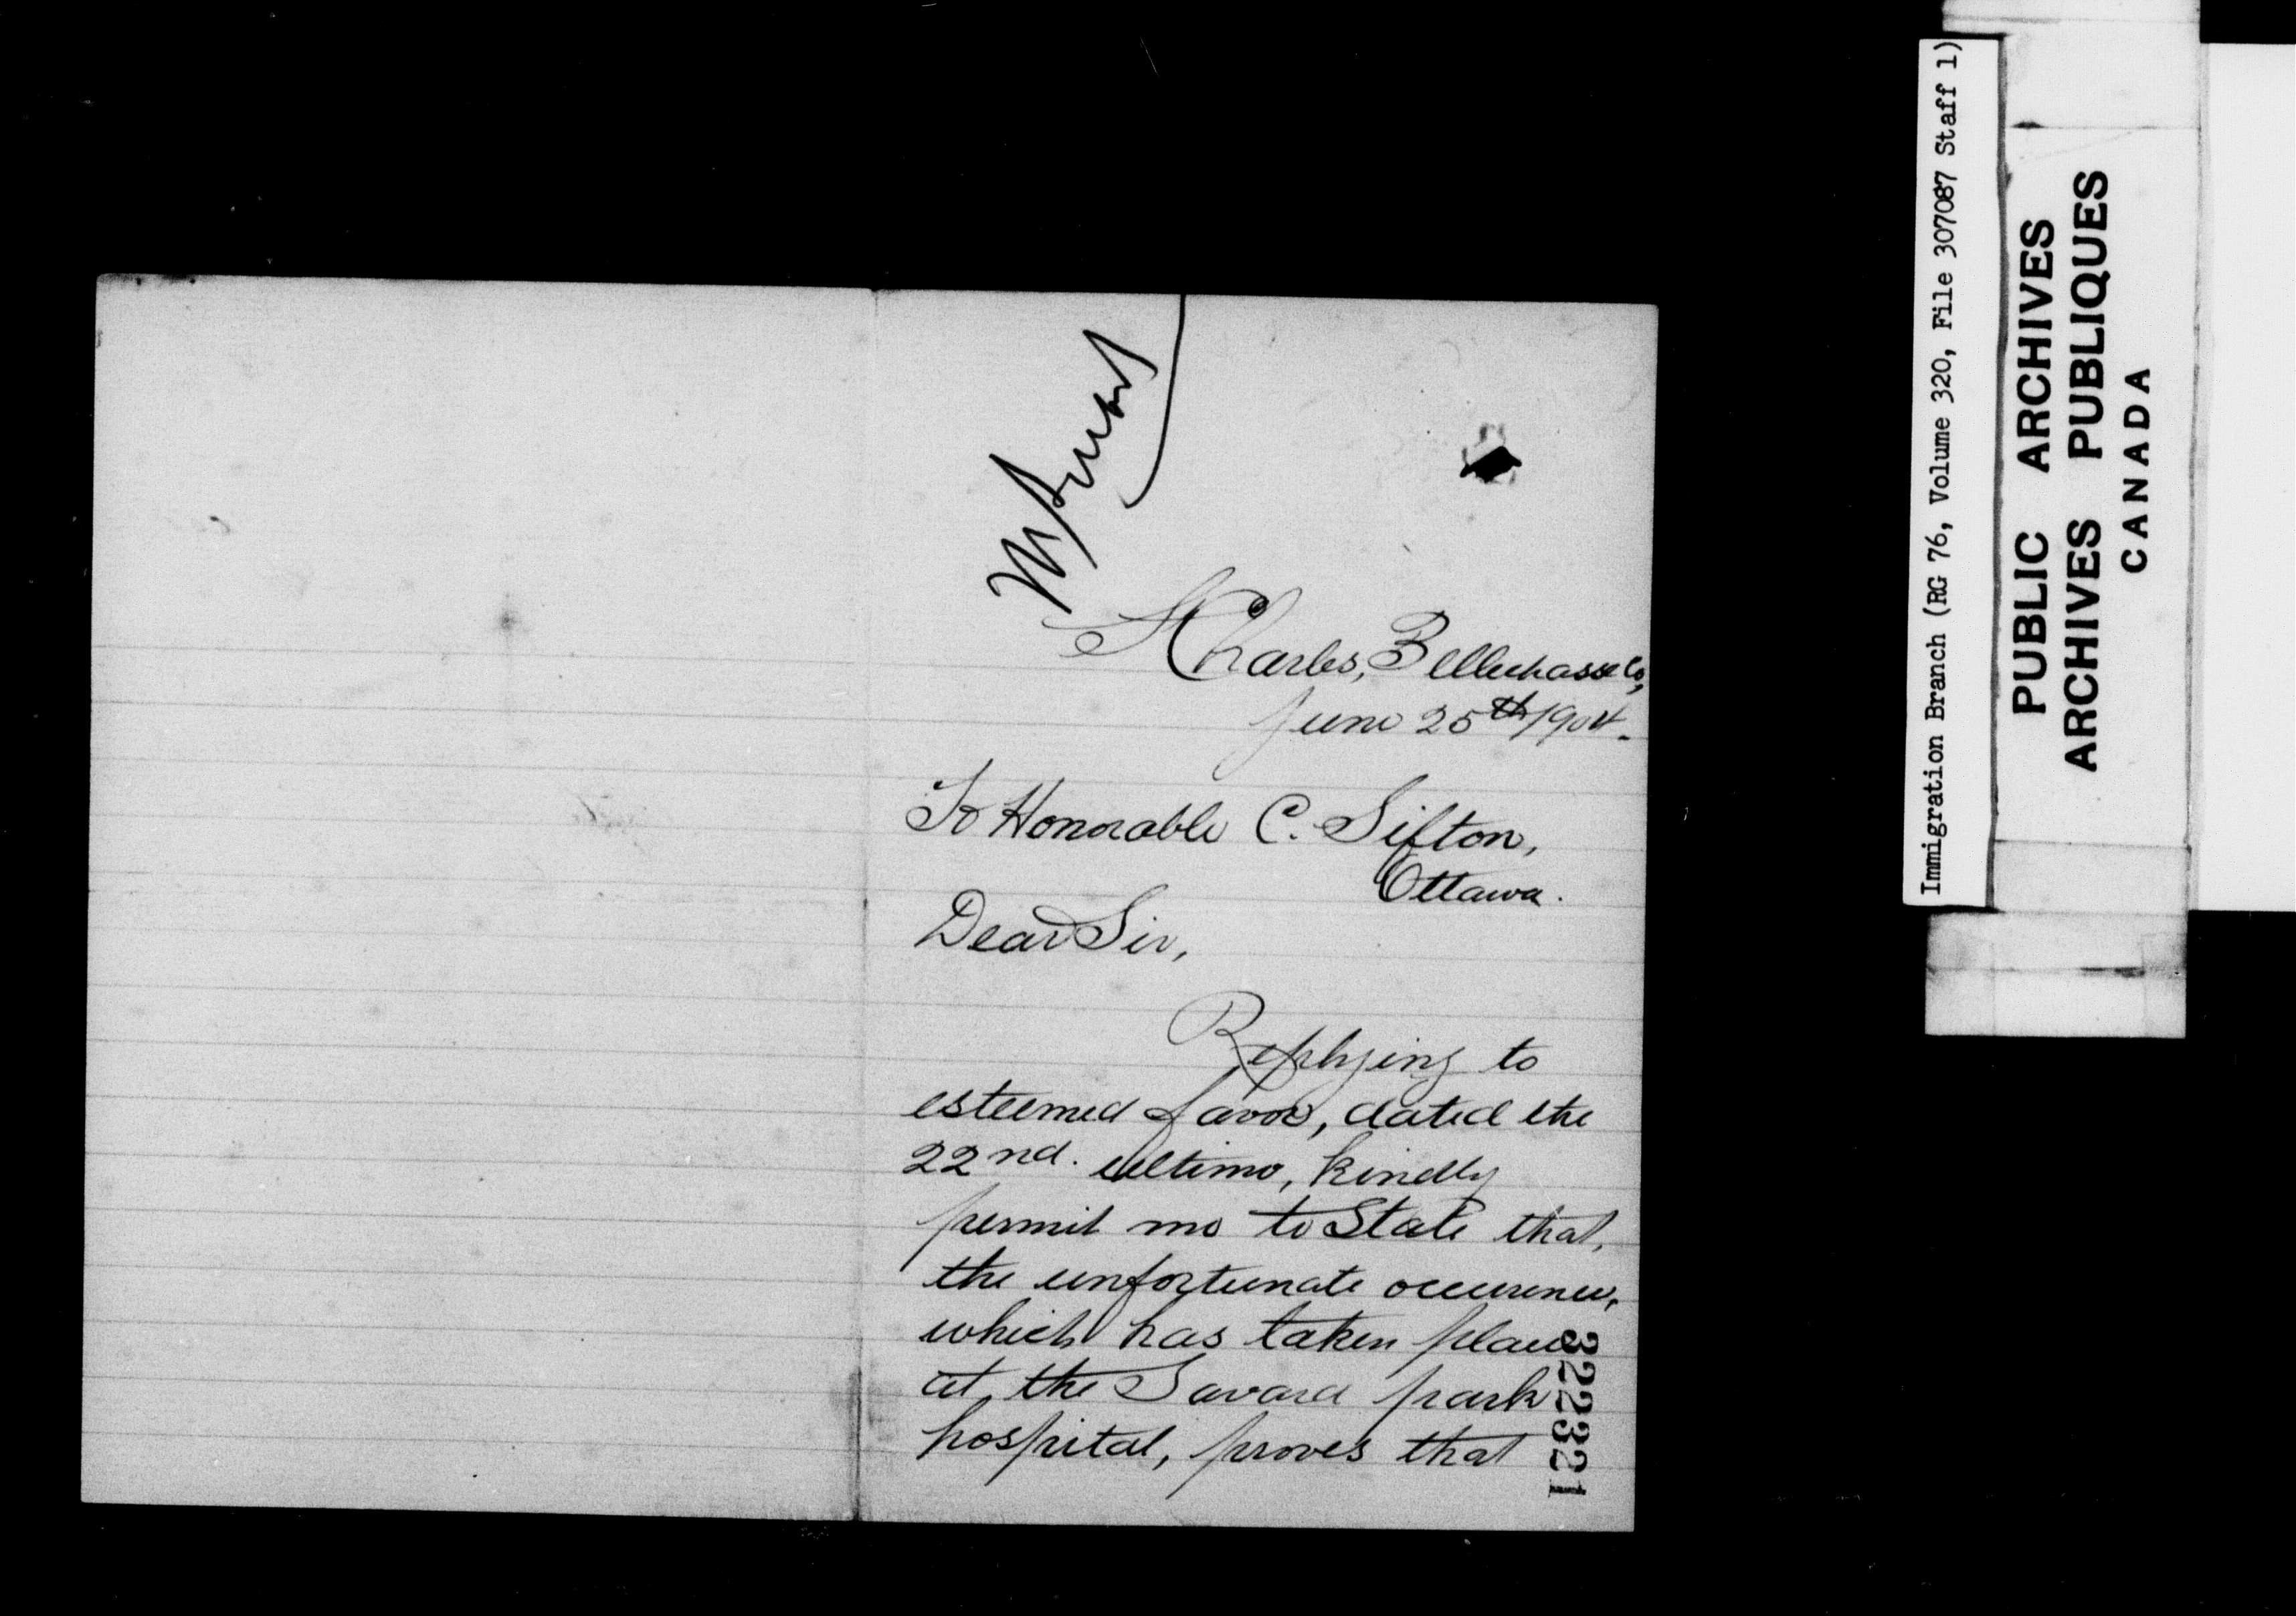 St Charles, Bellechasse Co,
June 25th 1904.
To Honorable C. Sifton,
Ottawa.
Dear Sir,
Replying to
esteemed favor, dated the
22nd. ultimo, kindly
permit me to State that,
the unfortunate occurence,
which has taken place
at the Savard park
hospital, proves that
322321
Immigration Branch (RG 76, Volume 320, File 307087 Staff 1)
PUBLIC ARCHIVES
ARCHIVES PUBLIQUES
CANADA